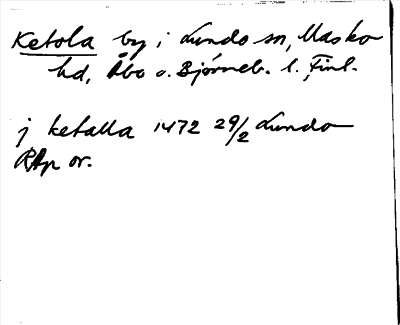 Ketola by i Lundo sn, Masko
hd, Åbo o. Björneb. l. Finl.
j ketalla 1472 29/2 Lundo
RAp or.